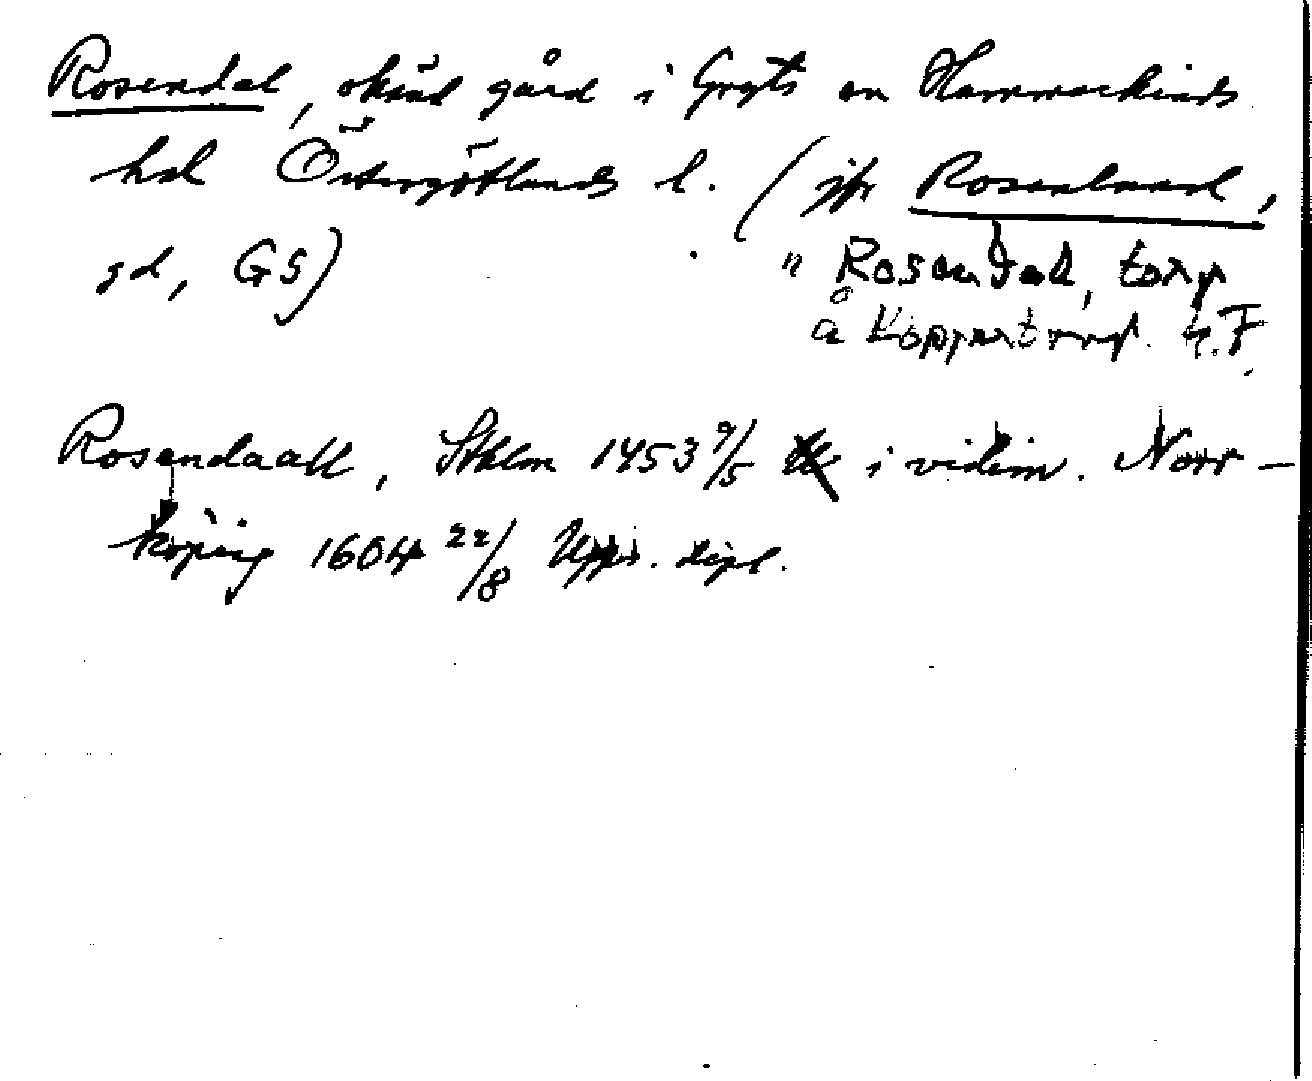 Rosendal, okänd gård i Gryts sn Hammarkinds
hd Östergötlands l. (jfr Rosenlund,
gd, GS)
" Rosendal, torp
å Koppartorp. G.F.
Rosendaall, Sthlm 1453 9/5 i vidim. Norr-
köping 1604 22/8 Upps. dipl.